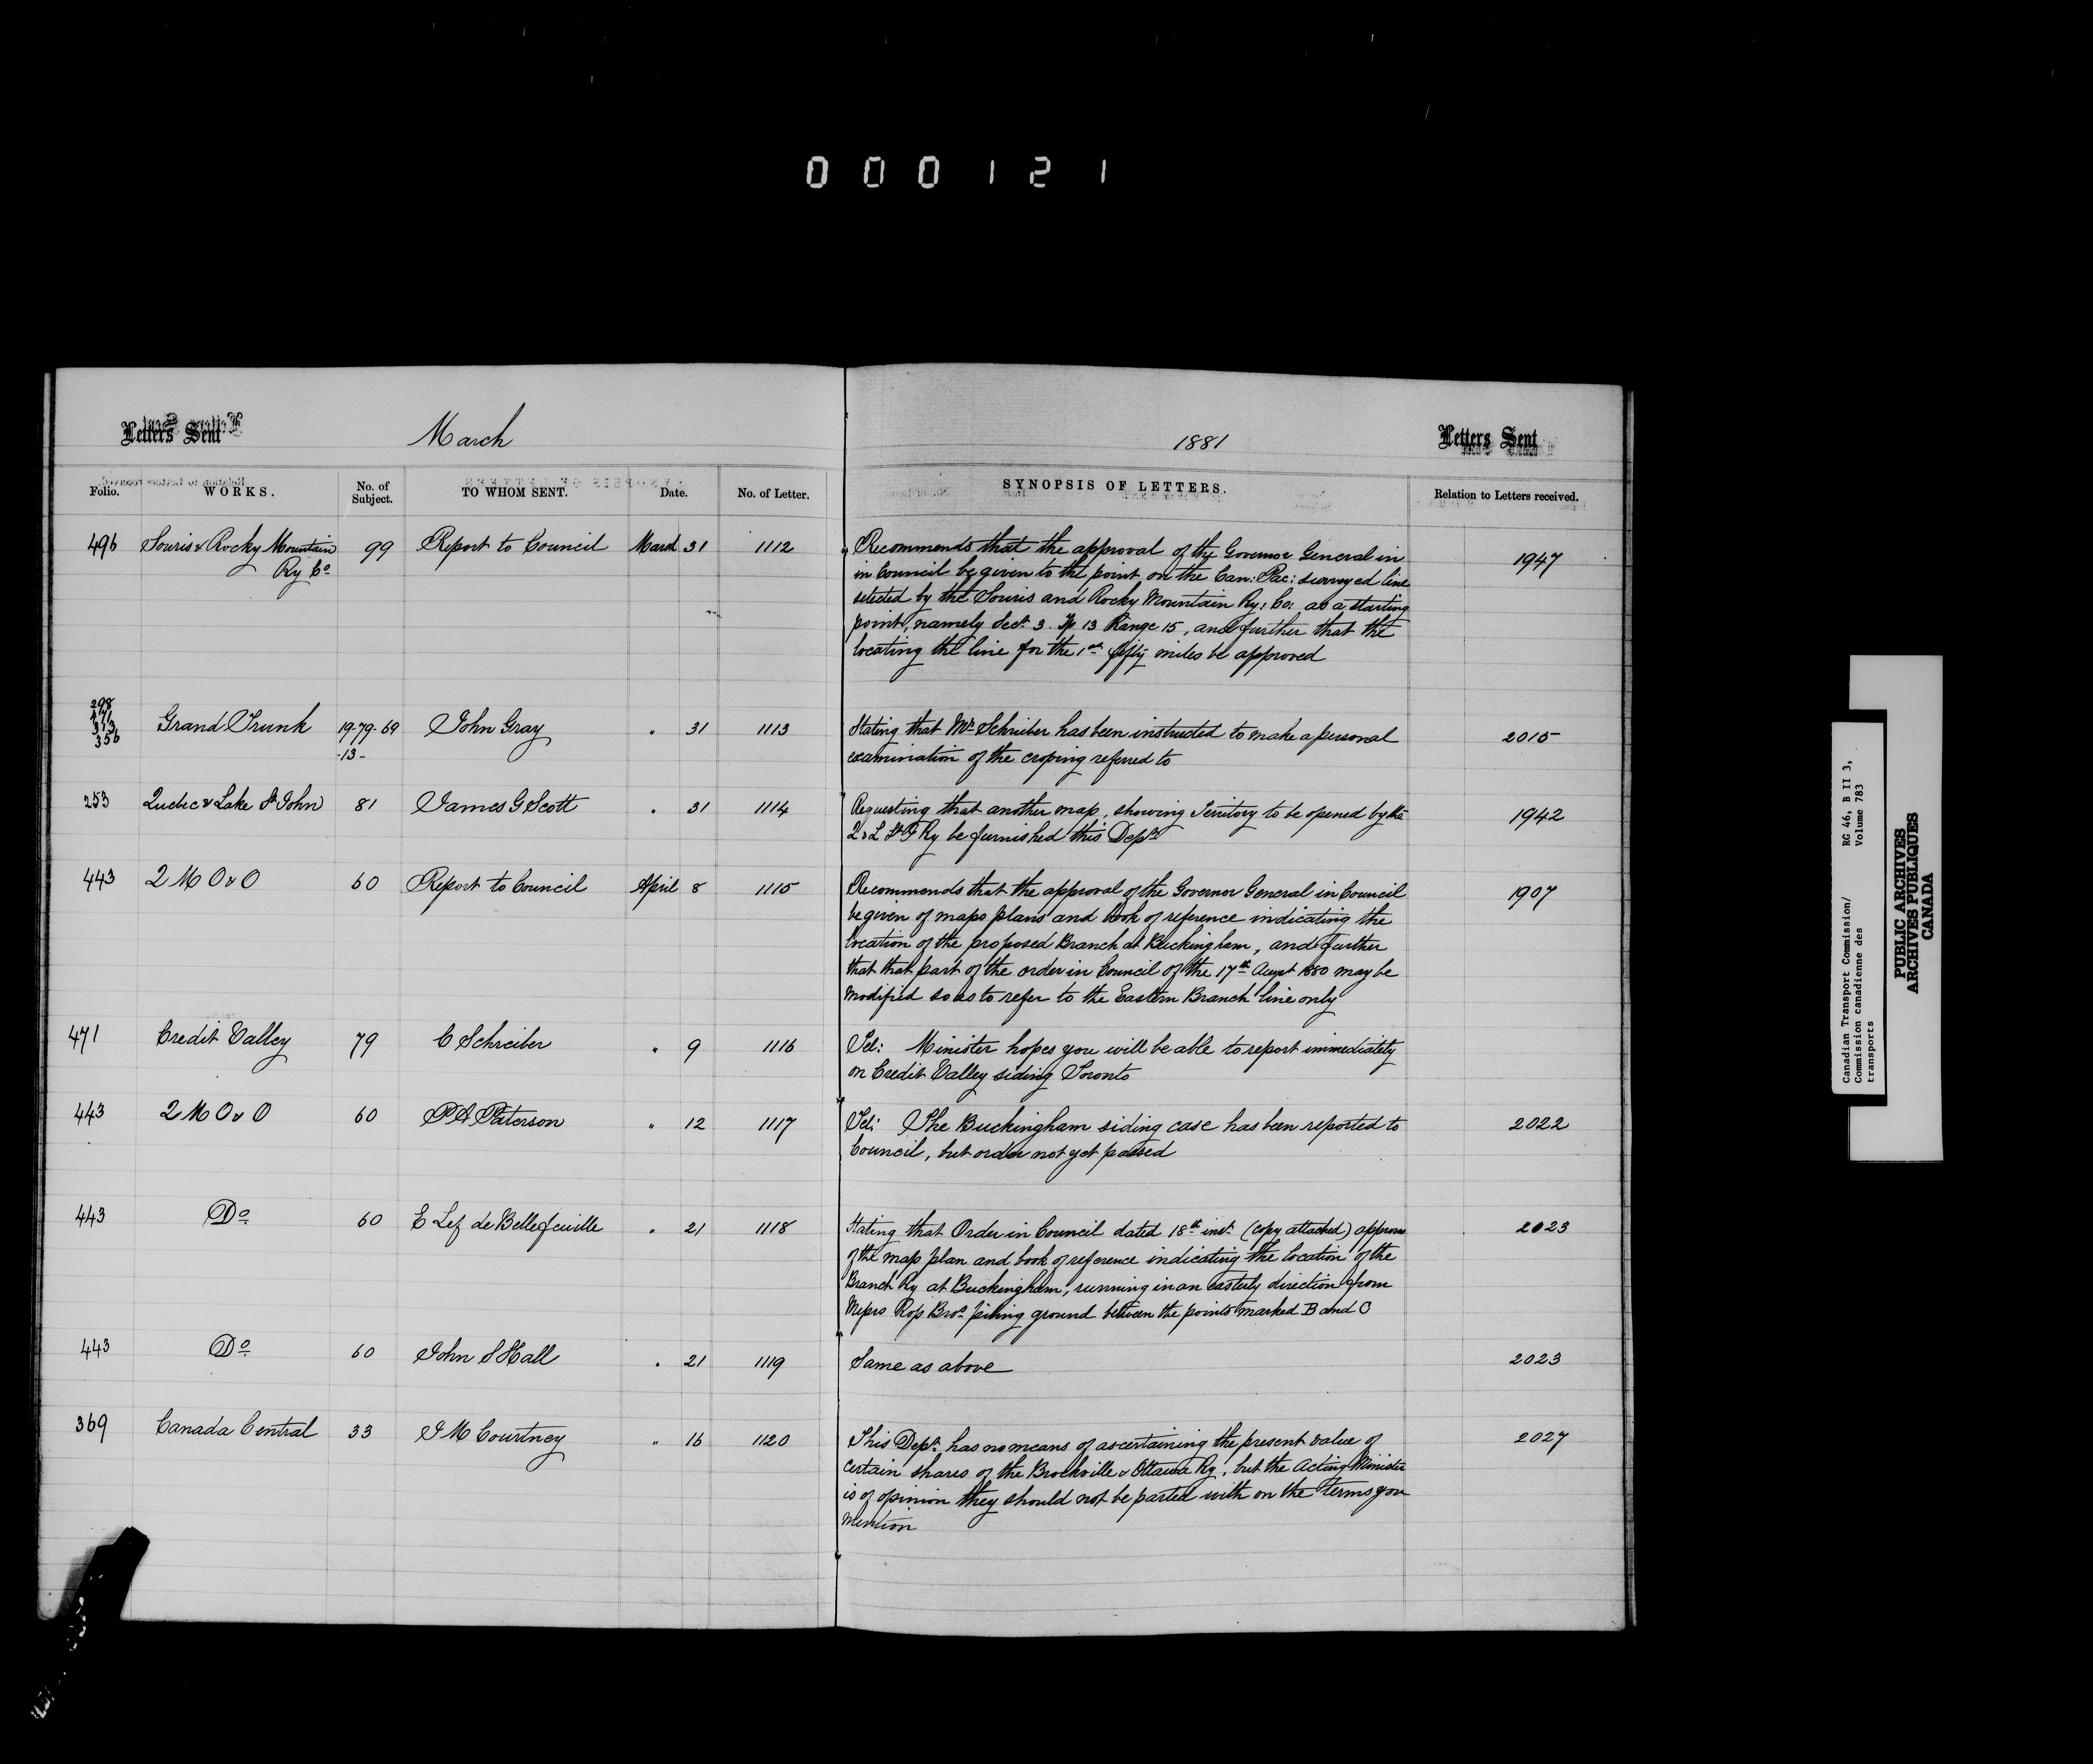 000121
Letters Sent
March
1881
Letters Sent
Folio. WORKS. No. of Subject. TO WHOM SENT. Date. No. of Letter. SYNOPSIS OF LETTERS. Relation to Letters received.
496 Souris & Rocky Mountain 99 Report to Council March 31 1112 Recommends that the approval of the Governor General in 1947
Ry Co
in Council be given to the point on the Can: Pac: surveyed line
selected by the Souris and Rocky Mountain Ry: Co: as a starting
point, namely Sect. 3. Tp 13 Range 15, and further that the
locating the line for the 1st fifty miles be approved
298
471
313
356
Grand Trunk 19-79-69 John Gray " 31 1113 Stating that Mr Schrieber has been instructed to make a personal 2015
-13-
examination of the croping referred to
253 Quebec & Lake St John 81 James G Scott " 31 1114 Requesting that another map, showing Territory to be opened by the 1942
Q & L St J Ry be furnished this Dept
443 Q M O & O 60 Report to Council April 8 1115 Recommends that the approval of the Governor General in Council 1907
be given of maps plans and book of reference indicating the
location of the proposed Branch at Buckingham, and further
that that part of the order in Council of the 17th Augst 1880 may be
modified so as to refer to the Eastern Branch line only
471 Credit Valley 79 C Schreiber " 9 1116 Tel: Minister hopes you will be able to report immediately
on Credit Valley siding Toronto
443 Q M O & O 60 P A Paterson " 12 1117 Tel: The Buckingham siding case has been reported to 2022
Council, but order not yet passed
443 Do 60 E Lef de Bellefeuille " 21 1118 Stating that Order in Council dated 18th inst (copy attached) approves 2023
of the map plan and book of reference indicating the location of the
Branch Ry at Buckingham, running in an easterly direction from
Messrs Ross Bros piling ground between the points marked B and C
443 Do 60 John S Hall " 21 1119 Same as above 2023
369 Canada Central 33 J M Courtney " 16 1120 This Dept. has no means of ascertaining the present value of 2027
certain shares of the Brockville & Ottawa Ry, but the Acting Minister
is of opinion they should not be parted with on the terms you
mention
Canadian Transport Commission/ RG 46, B II 3,
Commission canadienne des Volume 783
transports
PUBLIC ARCHIVES
ARCHIVES PUBLIQUES
CANADA